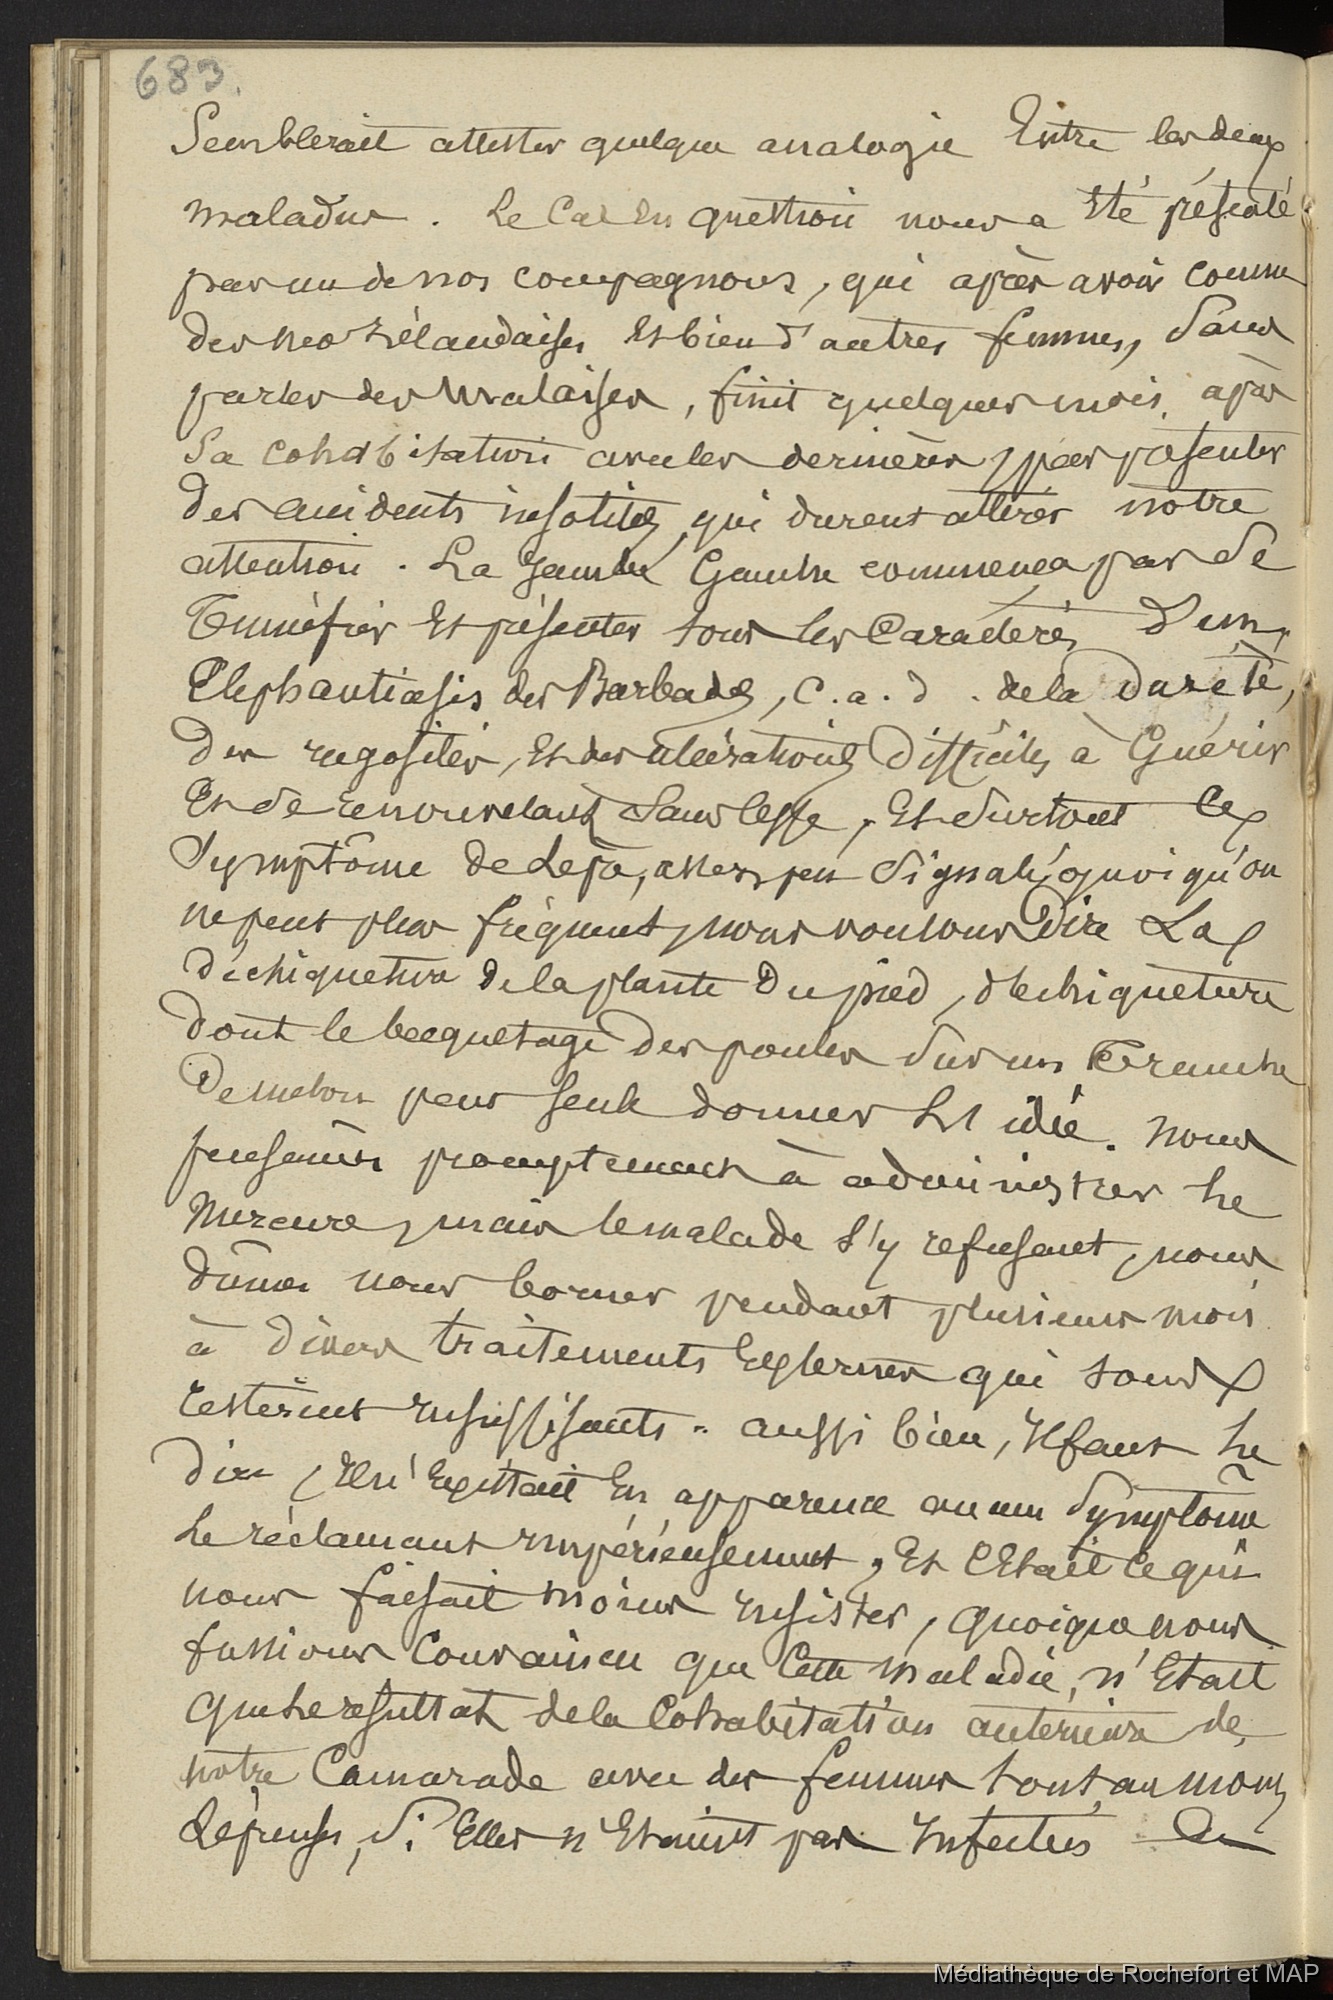 683.
Semblerait attester quelque analogie Entre les deux
maladies. Le Cas En question nous a Eté présenté
par un de nos compagnons, qui après avoir connu
des neo zélandaises Et bien d'autres femmes, Sans
parler des Malaises, finit quelques mois après
Sa cohabitation avec les dernières, par présenter
des accidents insolites, qui durent attirer notre
attention. La jambe Gauche commença par Se
Tuméfier Et présenter tous les Caractères d'un
Elephantiasis des Barbades, c.a.d. de la dureté,
des rugosités, Et des ulcérations difficiles à Guérir
Et Se renouvelant Sans Cesse, Et Surtout Ce
Symptôme de Lèpre, assez peu Signalé, quoi qu'on
ne peut plus fréquent, nous voulons Dire La
déchiqueture de la plante du pied, déchiqueture
dont le becquetage des poules Sur un Tranche
De melon peut seule donner Une idée. Nous
pensâmes promptement à administrer Le
Mercure, mais le malade S'y refusant, nous
dûmes nous borner pendant plusieurs mois
à divers traitements Externes qui tous
restèrent insuffisants. aussi bien, Il faut Le
dire, Il n'Existait En apparence aucun Symptôme
Le réclamant impérieusement, Et C'Etait Ce qui
nous faisait moins insister, quoique nous
fussions Convaincu que Cette maladie, n'Etait
que Le résultat de la Cohabitation anterieure de
notre Camarade avec des femmes tout au moins
Lépreuses, Si Elles n'Etaient pas Infectées De
Médiathèque de Rochefort et MAP